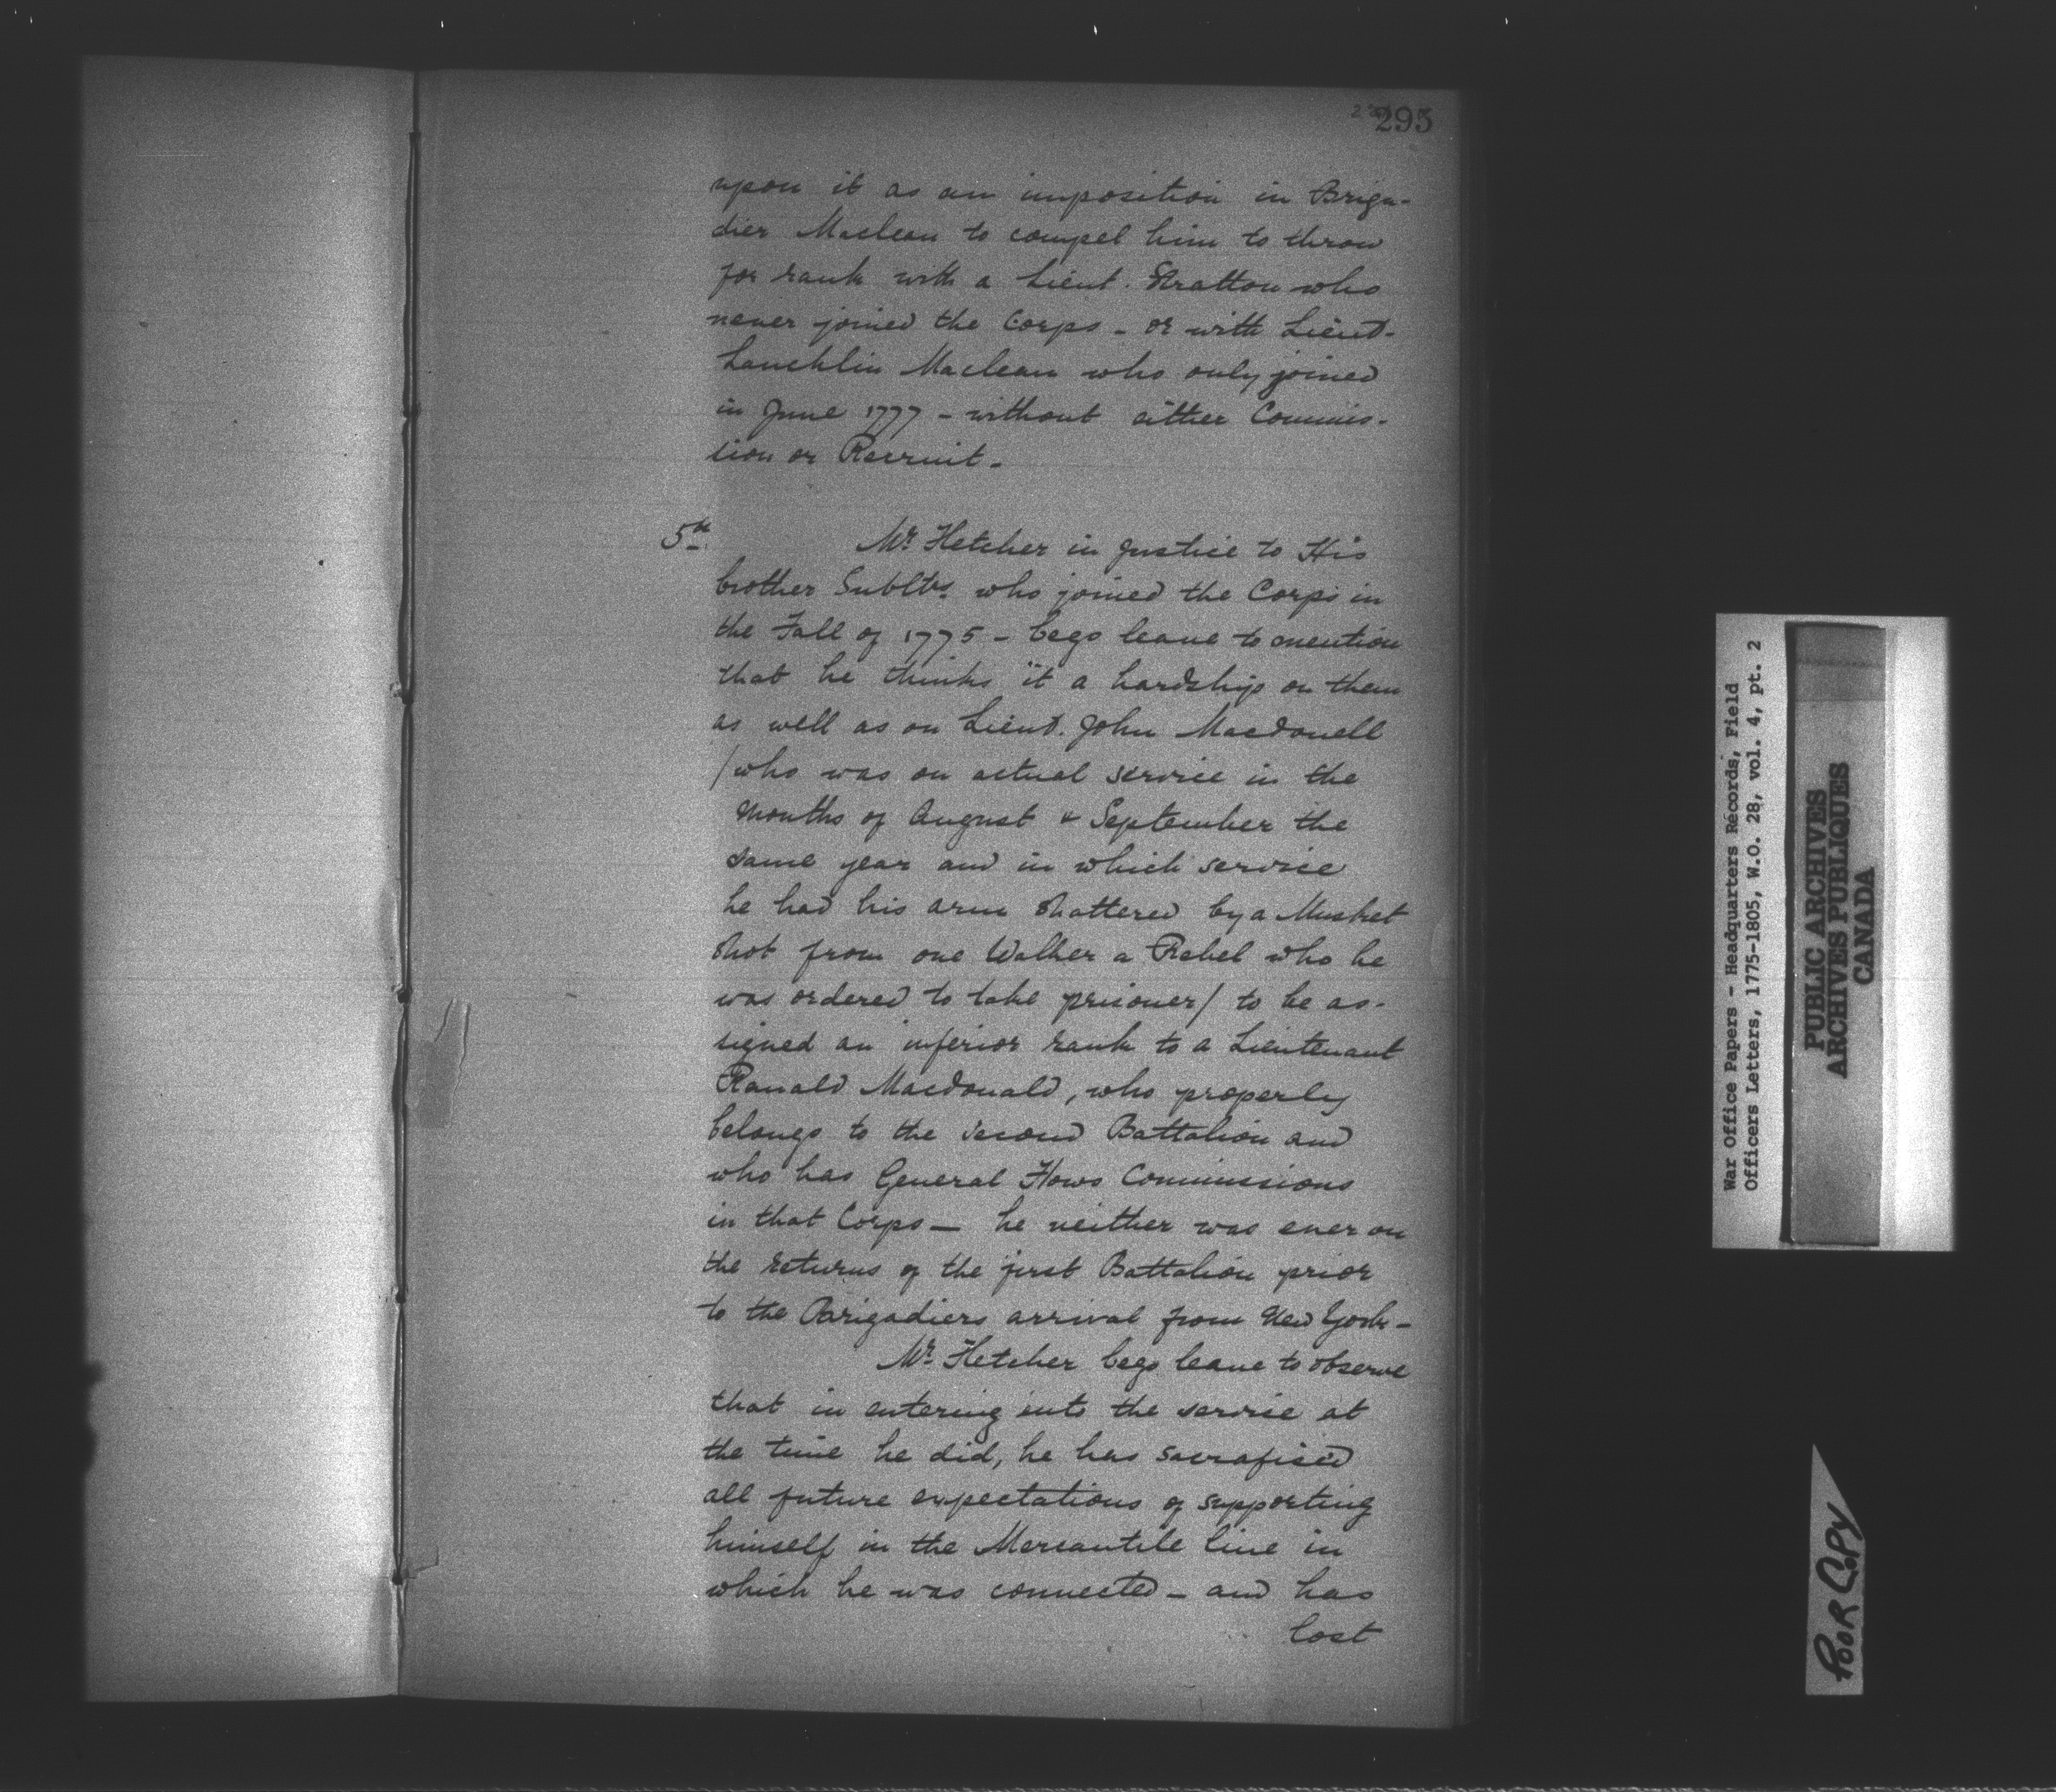 295
upon it as an imposition in Briga-
dier Maclean to compel him to throw
for rank with a Lieut. Stratton who
never joined the Corps - or with Lieut.
Lauchlin Maclean who only joined
in June 1777 - without either Commis-
sion or Recruit -
5th. Mr. Fletcher in Justice to His
brother Subltrs. who joined the Corps in
the Fall of 1775 - begs leave to mention
that he thinks it a hardship on them
as well as on Lieut. John Macdonell
/who was on actual service in the
Months of August & September the
same year and in which service
he had his arm shattered by a Musket
shot from one Walker a Rebel who he
was ordered to take prisoner/ to be as-
signed an inferior rank to a Lieutenant
Ranald Macdonald, who properly
belongs to the second Battalion and
who has General Hows Commissions
in that Corps — he neither was ever on
the returns of the first Battalion prior
to the Brigadiers arrival from New York -
Mr. Fletcher begs leave to observe
that in entering into the service at
the time he did, he has sacrafised
all future expectations of supporting
himself in the Mercantile line in
which he was connected - and has
lost
War Office Papers - Headquarters Records, Field
Officers Letters, 1775-1805, W.O. 28, vol. 4, pt. 2
PUBLIC ARCHIVES
ARCHIVES PUBLIQUES
CANADA
POOR COPY